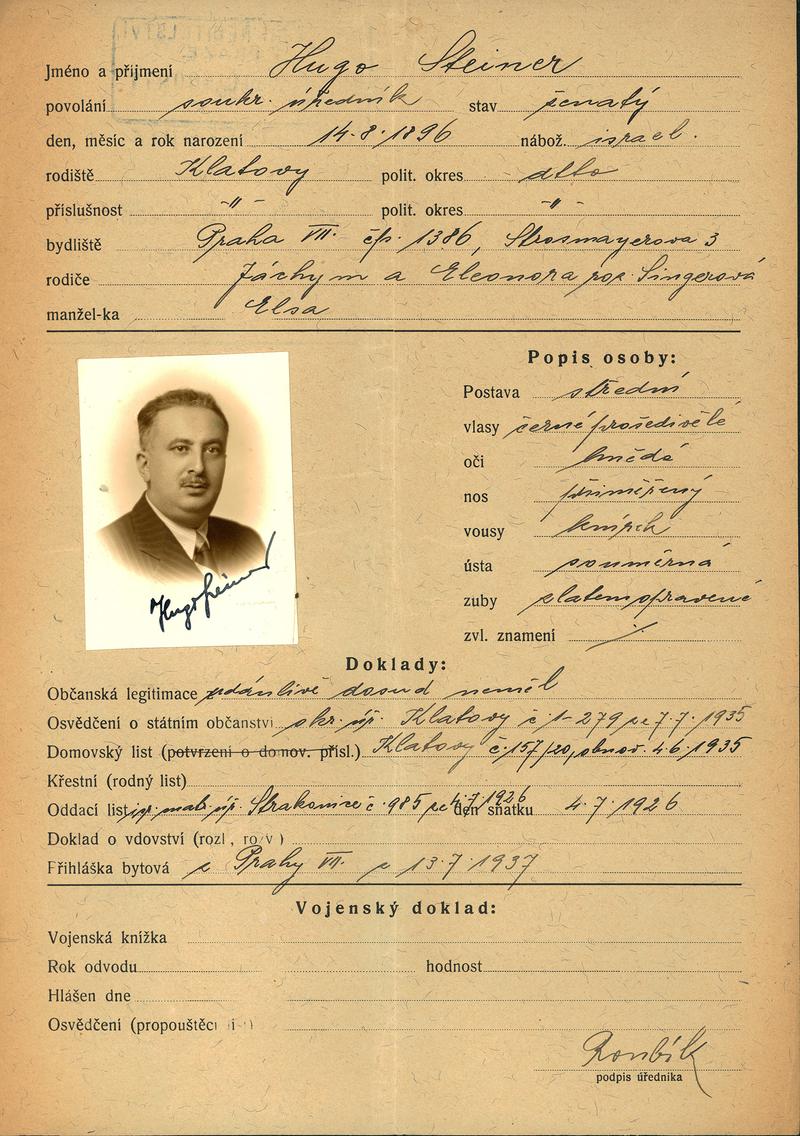 Jméno a příjmení Hugo Steiner
povolání soukr. úředník stav ženatý
den, měsíc a rok narození 14.8.1896 nábož. israel.
rodiště Klatovy polit. okres dtto
příslušnost -"- polit. okres -"-
bydliště Praha VII. čp. 1386, Strosmayerova 3
rodiče Jáchym a Eleonora roz. Singerová
manžel-ka Elsa
Popis osoby:
Postava střední
vlasy černé prošedivělé
oči hnědé
nos přiměřený
vousy knírek
ústa souměrná
zuby zlatem opravené
zvl. znamení ./.
Hugo Steiner
Doklady:
Občanská legitimace údánlivě dosud neměl
Osvědčení o státním občanství okr. úř. Klatovy č. 1-279 ze 7.7.1935
Domovský list (potvrzení o domov. přísl.) Klatovy č. 157/20, obnov. 4.6.1935
Křestní (rodný list)
Oddací list izr. matr. úř. Strakonice č. 985 ze 4.7.1926 den sňatku 4.7.1926
Doklad o vdovství (rozl., rozv.)
Přihláška bytová z Prahy VII. z 13.7.1937
Vojenský doklad:
Vojenská knížka
Rok odvodu hodnost
Hlášen dne
Osvědčení (propouštěcí
podpis úředníka